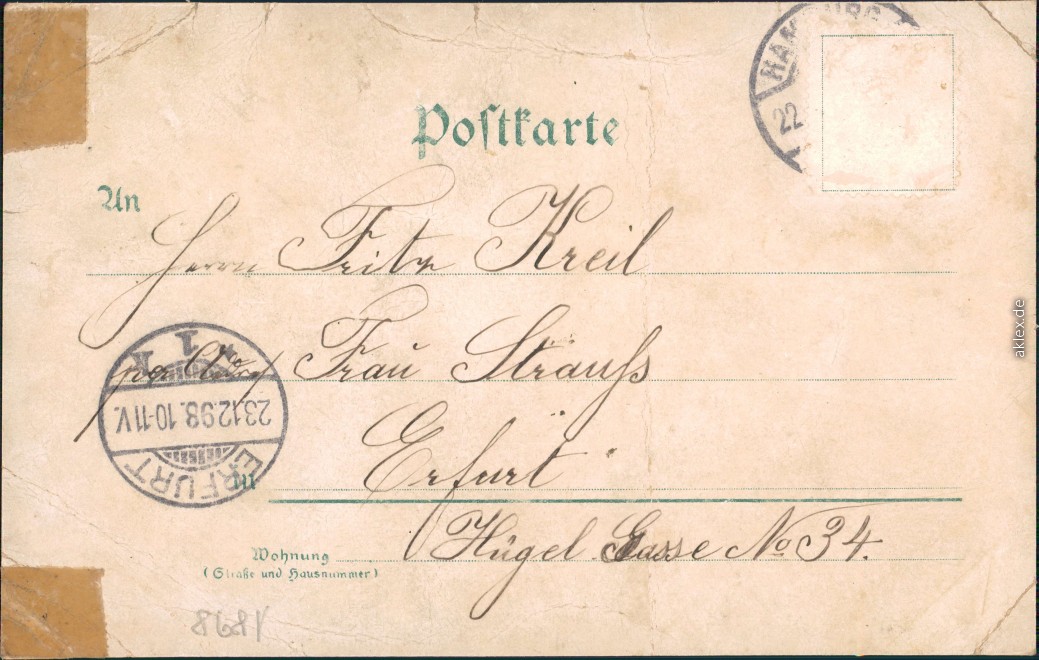 HAMBURG
22
Postkarte
An
Herrn Fritz Kreil
per Adr. Frau Strauss
Erfurt
in
Hügel Gasse No 34.
Wohnung
(Straße und Hausnummer)
ERFURT
23.12.98. 10-11 V.
1
aklex.de